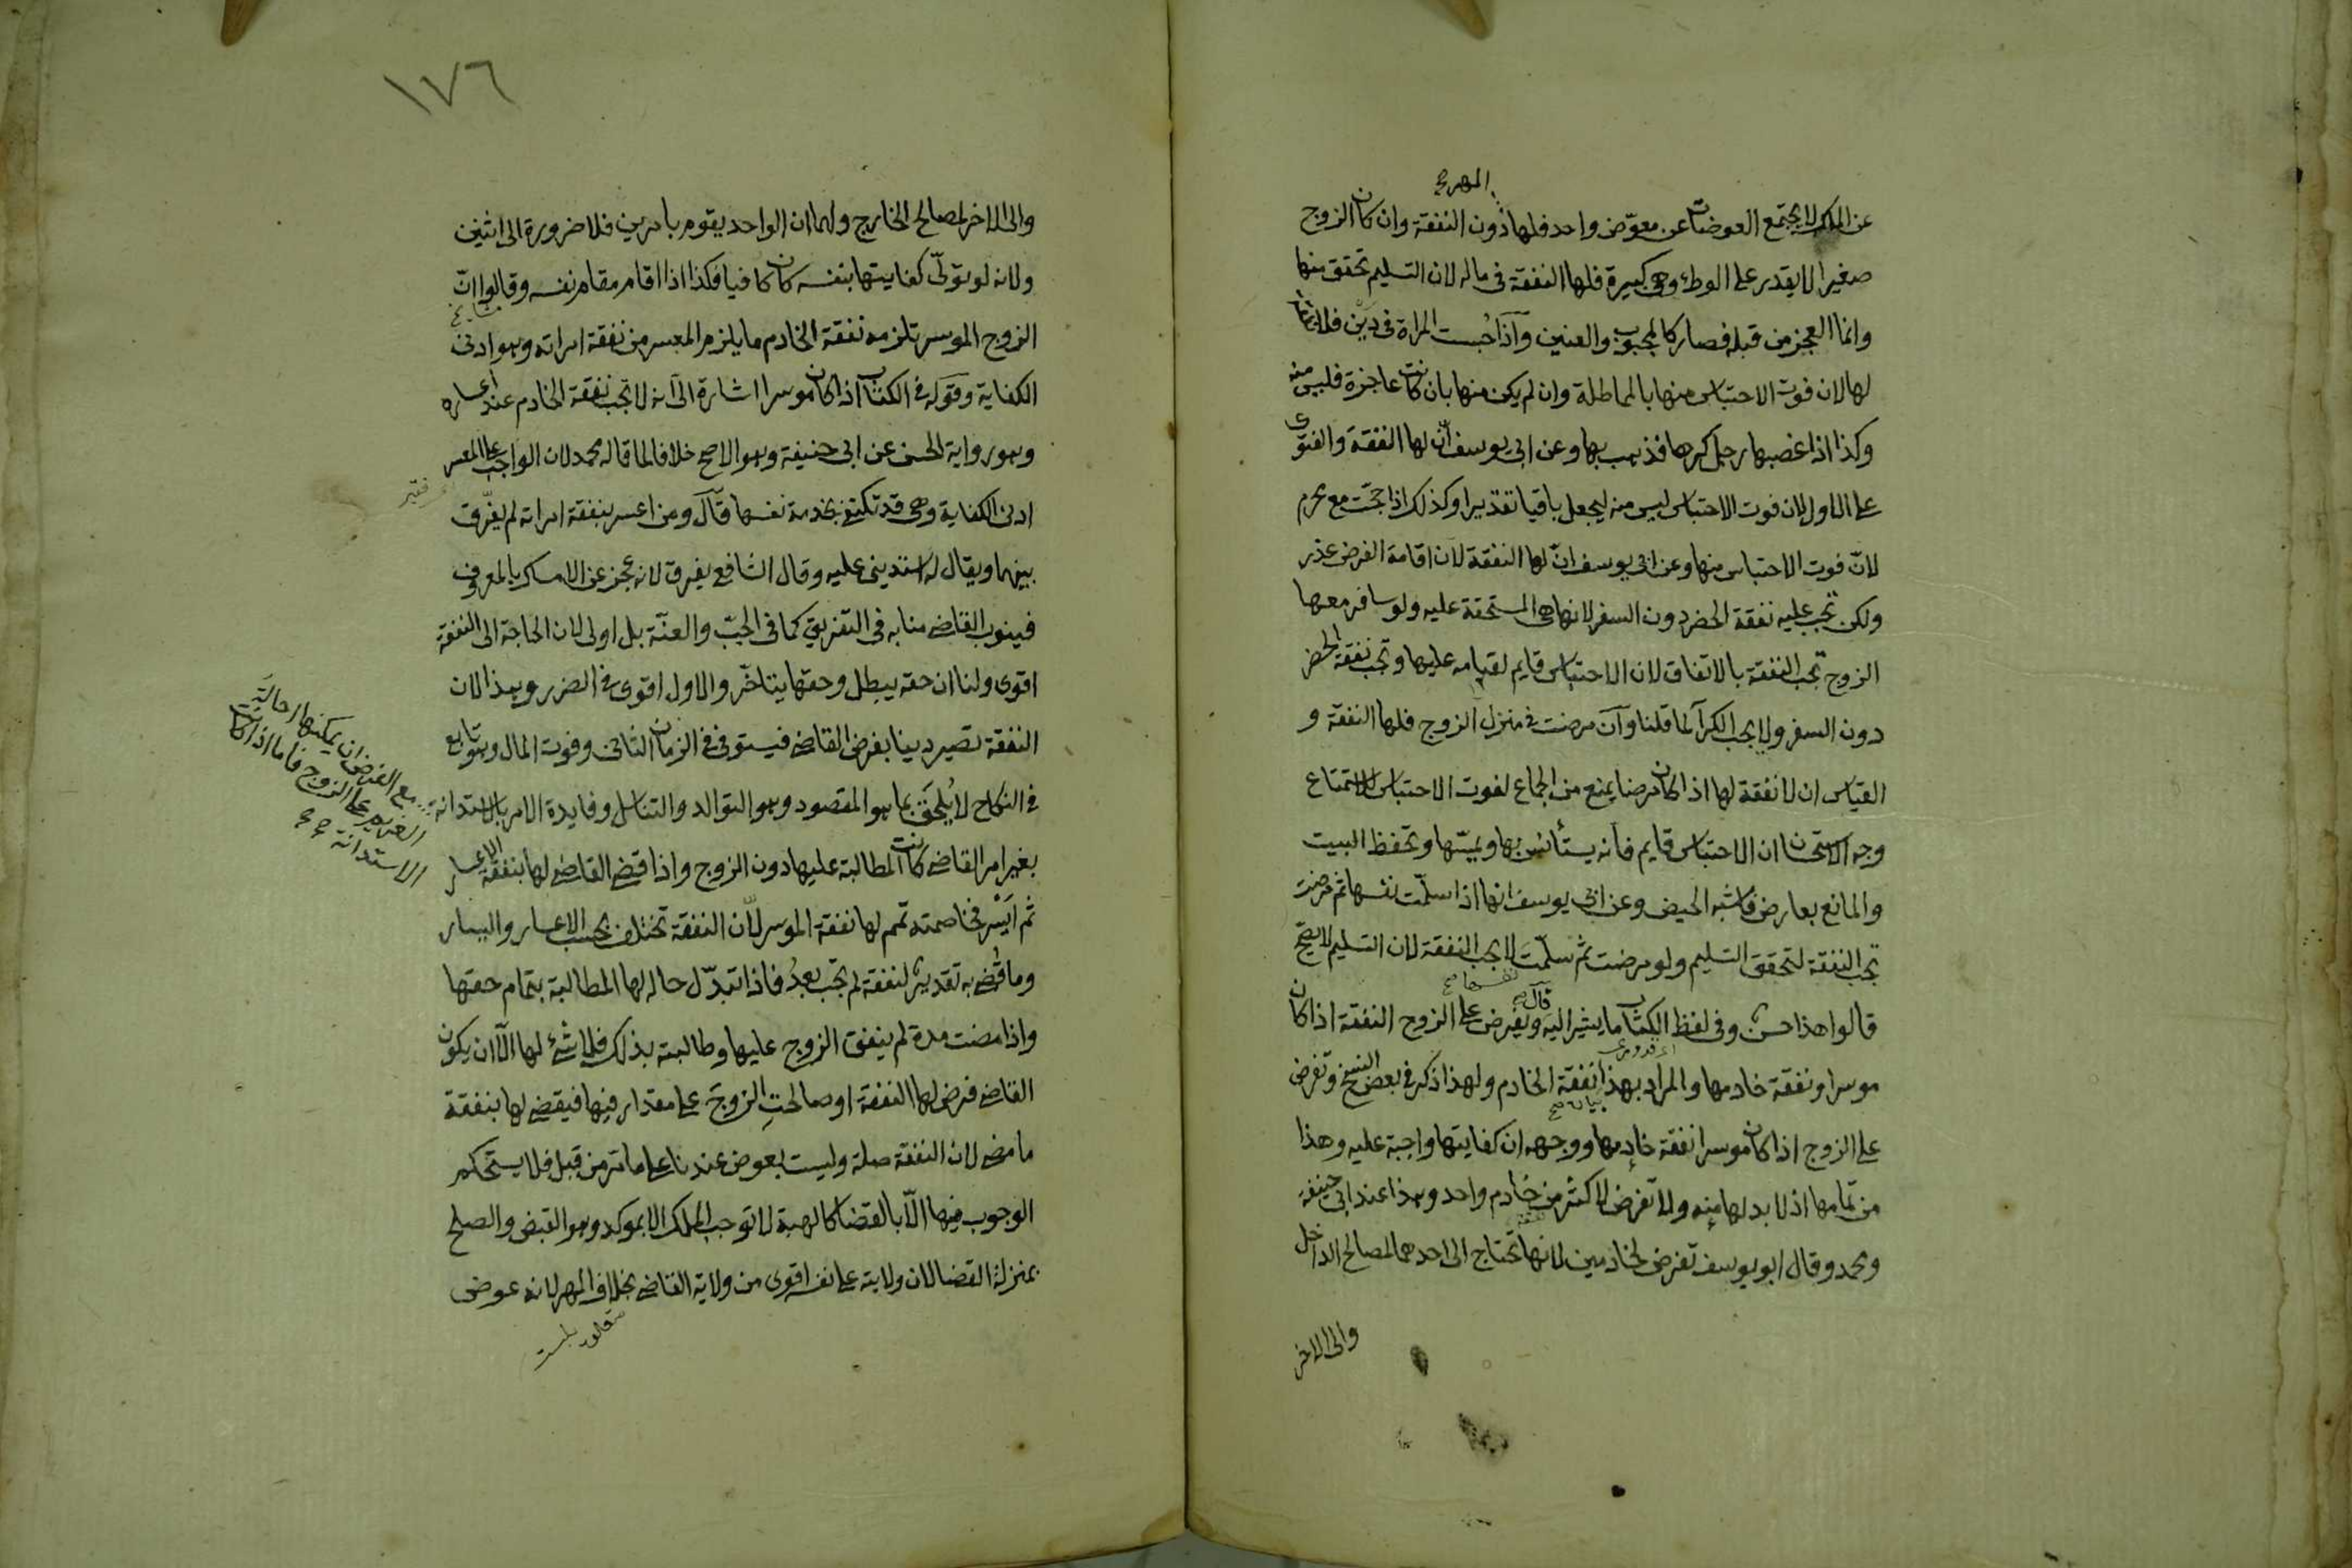 المهر صح
عن الملك لا يجتمع العوضان عن معوّض واحد فلها دون النفقة وان كان الزوج
صغيرا لا يقدر على الوطئ وهى كبيرة فلها النفقة فى ماله لان التسليم تحقق منها
وانما العجز من قبله فصار كالمجبوب والعنين وآذا حُبست المراة فى دَيْن فلا نفقة
لها لان فوت الاحتباس منها بالمماطلة وان لم يكن منها بان كانت عاجزة فليس منه
وكذا اذا غصبها رجل كرها فذهب بها وعن ابى يوسف انّ لها النفقة والفتوى
على الاول لان فوت الاحتباس ليس منه ليجعل باقيا تقديرا وكذلك اذا حجّت مع محرم
لانّ فوت الاحتباس منها وعن ابى يوسف انّ لها النفقة لان اقامة الفرض عذر
ولكن تجب عليه نفقة الحضر دون السفر لانها هى المستحقة عليه ولو سافر معها
الزوج تجب النفقة بالاتفاق لان الاحتباس قايم لقيامه عليها وتجب نفقة الحضر
دون السفر ولا يجب الكرآ لما قلنا وآن مرضت فى منزل الزوج فلها النفقة و
القياس ان لا نفقة لها اذا كان مرضا يمنع من الجماع لفوت الاحتباس للاستمتاع
وجه الاستحسان ان الاحتباس قايم فانه يستأنس بها ويمسّها وتحفظ البيت
والمانع بعارض فاشبه الحيض وعن ابى يوسف انها اذا سلّمت نفسها ثم مرضت
تجب النفقة لتحقق التسليم ولو مرضت ثم سلّمت لا يجب النفقة لان التسليم لا يصحّ
نفسها صح
قالوا هذا حسن وفى لفظ الكتاب ما يشير اليه قآل ويفرض على الزوج النفقة اذا كان
موسرا ونفقة خادمها والمراد بهذا نفقة الخادم ولهذا ذكر فى بعض النسخ وتفرض
بيان صح
على الزوج اذا كان موسرا نفقة خادمها ووجهه ان كفايتها واجبة عليه وهذا
من تمامها اذ لا بد لها منه ولا تفرض لاكثر من خادم واحد وهذا عند ابى حنيفة
ومحمد وقال ابو يوسف تفرض لخادمين لانها تحتاج الى احدهما لمصالح الداخل
والى الاخر
١٧٦
والى الاخر لمصالح الخارج ولهما ان الواحد يقوم بامرين فلا ضرورة الى اثنين
ولانه لو تولّى كفايتها بنفسه كان كافيا فكذا اذا اقام مقام نفسه وقالوا انّ
الزوج الموسر تلزمه نفقة الخادم ما يلزم المعسر من نفقة امراته وهو ادنى
الكفاية وقوله فى الكتاب اذا كان موسرا اشارة الى انه لا تجب نفقة الخادم عند اعساره
وهو رواية الحسن عن ابى حنيفة وهو الاصح خلافا لما قاله محمد لان الواجب على المعسر
فقير
ادنى الكفاية وهى قد تكتفى بخدمة نفسها قآل ومن اعسر بنفقة امراته لم يفرّق
بينهما ويقال له استدينى عليه وقال الشافعى يفرق لانه عجز عن الامساك بالمعروف
فينوب القاضى منابه فى التفريق كما فى الجبّ والعنّة بل اولى لان الحاجة الى النفقة
اقوى ولنا ان حقه يبطل وحقها يتاخّر والاول اقوى فى الضرر وهذا لان
النفقة تصير دينا بفرض القاضى فيستوفى فى الزمان الثانى وفوت المال وهو تابع
فى النكاح لا يُلحَق بما هو المقصود وهو التوالد والتناسل وفايدة الامر بالاستدانة
مع الفرض ان يمكنها احالة
الغريم على الزوج فاما اذا كانت
الاستدانة صح صح
بغير امر القاضى كانت المطالبة عليها دون الزوج واذا قضى القاضى لها بنفقة الاعسار
ثم ايسر فخاصمته تمم لها نفقة الموسر لانّ النفقة تختلف بحسب الاعسار واليسار
وما قُضى به تقدير لنفقة لم تجب بعدُ فاذا تبدّل حاله لها المطالبة بتمام حقها
واذا مضت مدة لم ينفق الزوج عليها وطالبته بذلك فلا شئ لها الّا ان يكون
القاضى فرض لها النفقة او صالحتِ الزوجَ على مقدار فيها فيقضى لها بنفقة
ما مضى لان النفقة صلة وليست بعوض عندنا على ما مر من قبل فلا يستحكم
الوجوب فيها الّا بالقضا كالهبة لا توجب الملك الا بموكد وهو القبض والصلح
بمنزلة القضا لان ولايته على نفسه اقوى من ولاية القاضى بخلاف المهر لانه عوض